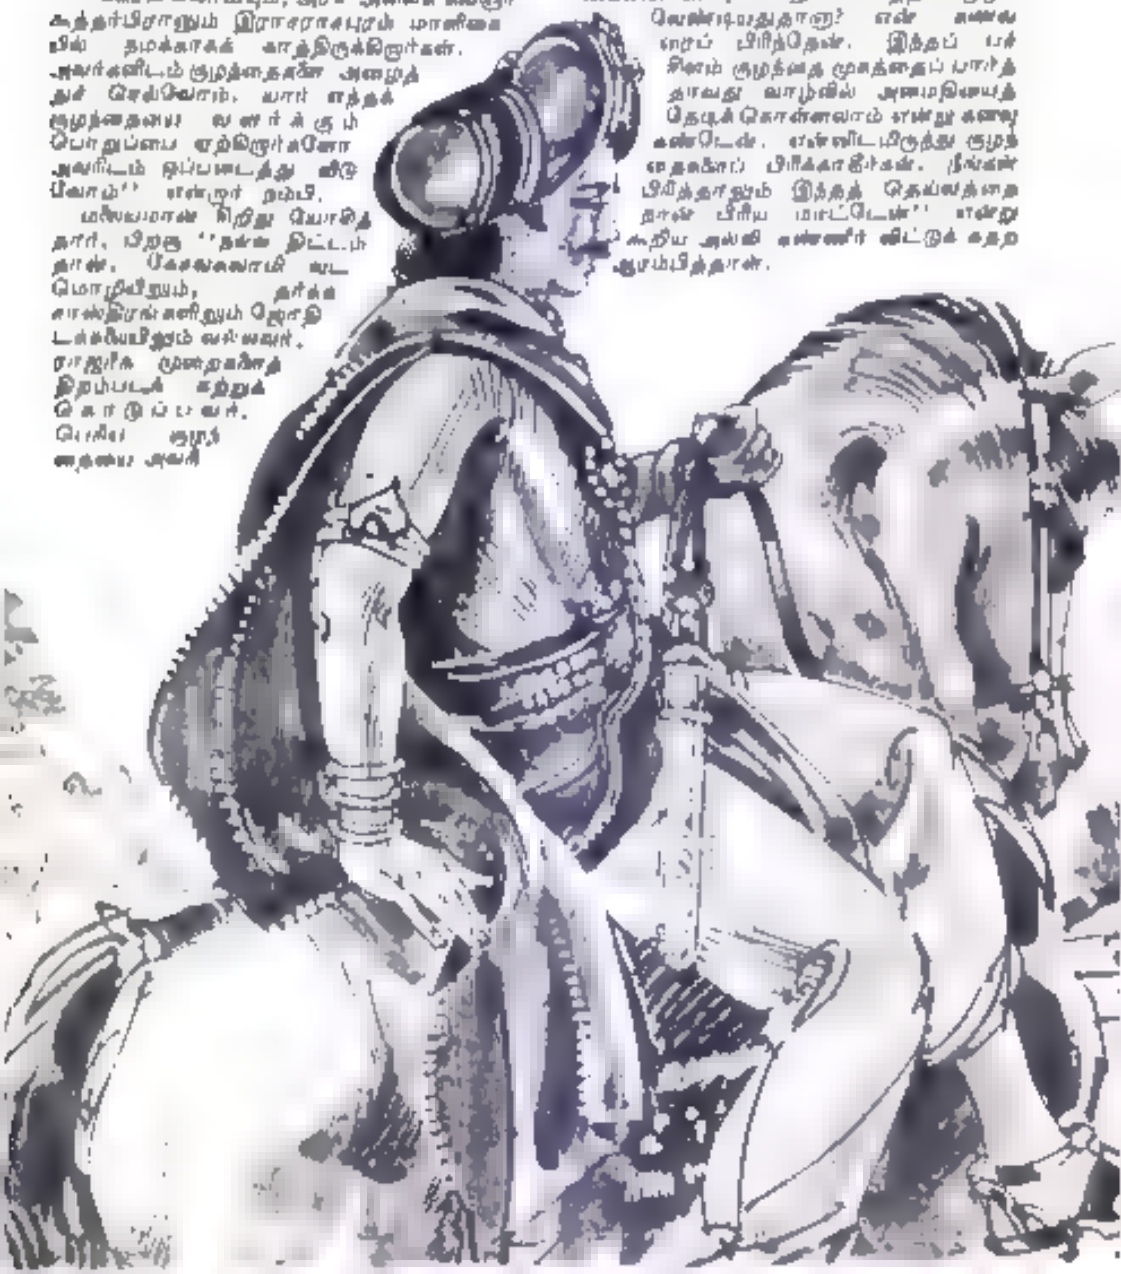 சுந்தர்பிரானும் இராசராசபுரம் மாளிகை
யில் நமக்காகக் காத்திருக்கிறார்கள்.
அவர்களிடம் குழந்தைகளை அழைத்
துச் செல்வோம். யார் எந்தக்
குழந்தையை வளர்க்கும்
பொறுப்பை ஏற்கிறார்களோ
அவரிடம் ஒப்படைத்து விடு
வோம்'' என்றார் நம்பி.
மலையமான் சிறிது யோசித்
தார். பிறகு ''நல்ல திட்டம்
தான்.
மொழியிலும், தர்க்க
சாஸ்திரங்களிலும் ஜோதி
டக்கலையிலும் வல்லவர்.
ராஜரீக முறைகளைத்
திறம்படக் கற்றுக்
கொடுப்பவர்.
பெரிய குழந்
தையை அவரி
வேண்டியதுதானா? என் கணவ
ரைப் பிரிந்தேன். இந்தப் பச்
சிளம் குழந்தை முகத்தைப் பார்த்
தாவது வாழ்வில் அமைதியைத்
தேடிக்கொள்ளலாம் என்று கனவு
கண்டேன். என்னிடமிருந்து குழந்
தைகளைப் பிரிக்காதீர்கள். நீங்கள்
பிரித்தாலும் இந்தத் தெய்வத்தை
நான் பிரிய மாட்டேன்'' என்று
கூறிய அல்லி கண்ணீர் விட்டுக் கதற
ஆரம்பித்தாள்.